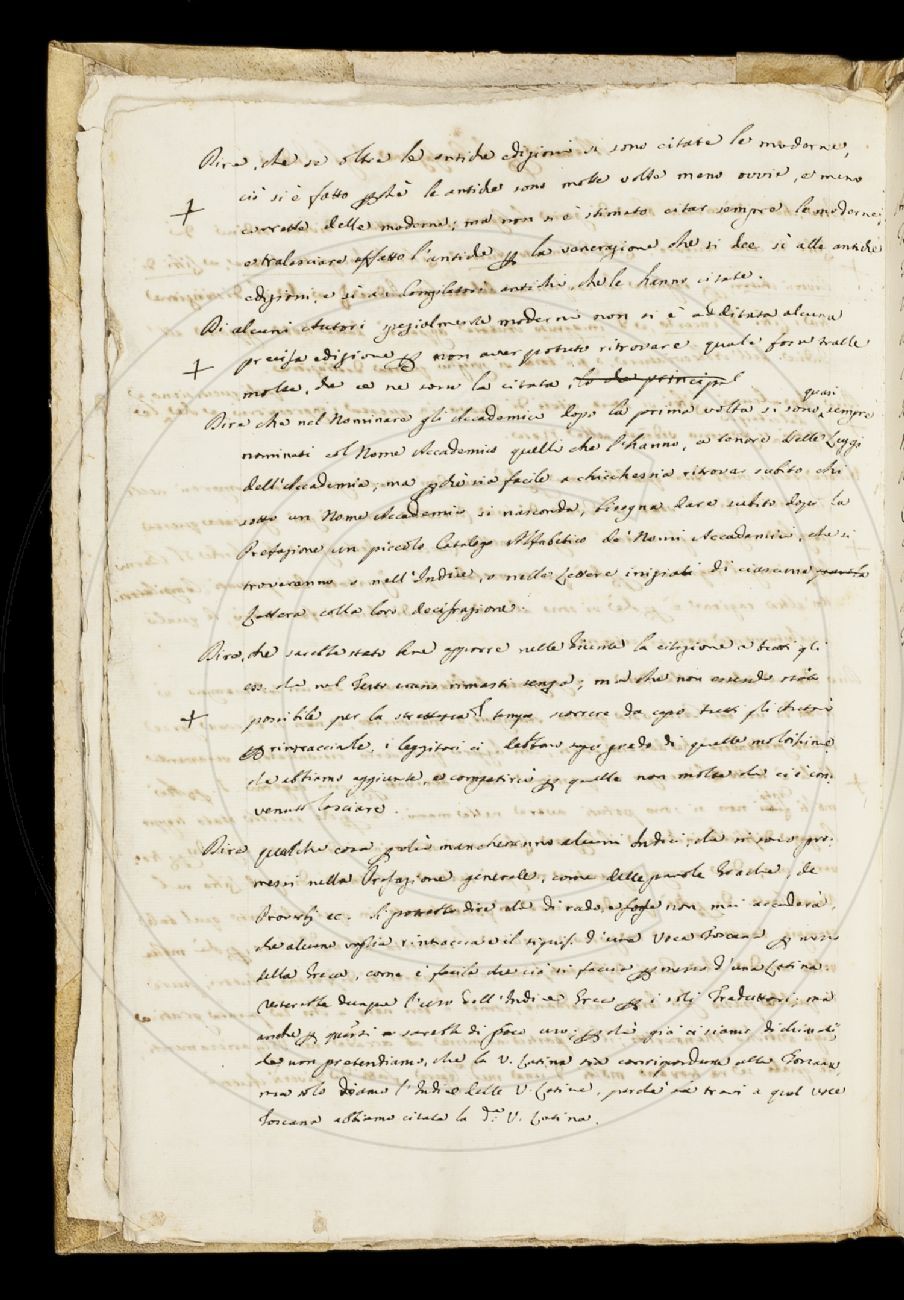 Dire, che se oltre le antiche edizioni si sono citate le moderne,
ciò si è fatto pchè le antiche sono molte volte meno ovvie, e meno
+ corrette delle moderne; ma non si è stimato citar sempre le moderne,
e tralasciare affatto l'antiche p la venerazione che si dee sì alle antiche
edizioni, e sì a i Compilatori antichi, che le hanno citate.
Di alcuni Autori spezialmente moderni non si è additata alcuna
+ precisa edizione p non aver potuto ritrovare quale fosse tralle
molte, che ce ne sono la citata, lo che principal
quasi
Dire che nel Nominare gli Accademici dopo la prima volta si sono sempre
nominati col Nome Accademico quelli che l'hanno, a tenore delle Leggi
dell'Accademia, ma pchè sia facile a chicchessia ritrovar subito chi
sotto un Nome Accademico si nasconda, bisogna dare subito dopo la
Prefazione un piccolo Catalogo Alfabetico de' Nomi Accademici, che si
troveranno o nell'Indice, o nelle Lettere iniziali di ciascuna parola
Lettera colla loro decifrazione.
Dire, che sarebbe stato bene apporre nelle Giunte la citazione a tutti gli
ess. che nel Testo erano rimasti senza; ma che non essendo stato
+ possibile per la strettezza del tempo scorrere da capo tutti gli Autori
p rintracciarle, i leggitori ci debbano saper grado di quelle moltissime
che abbiamo aggiunte, e compatirci p quelle non molte che ci è con-
venuto lasciare.
Dire qualche cosa pchè mancheranno alcuni Indici, che si sono pro-
messi nella Prefazione generale, come delle parole Greche, de
Proverbj ec. Si potrebbe dire che di rado, e forse non mai accaderà,
che alcuno voglia rintracciare il signif. d'una Voce Toscana p mezzo
della Greca, come è facile che ciò si faccia p mezzo d'una Latina.
l'uso dell'Indice Greco p i soli Traduttori; ma
anche p questi sarebbe di poco uso; pchè già ci siamo dichiarati,
che non pretendiamo, che la V. Latina sia corrispondente alla Toscana,
ma solo diamo l'Indice delle V. Latine, perchè si trovi a qual voce
Toscana abbiamo citata la d.ª V. Latina.